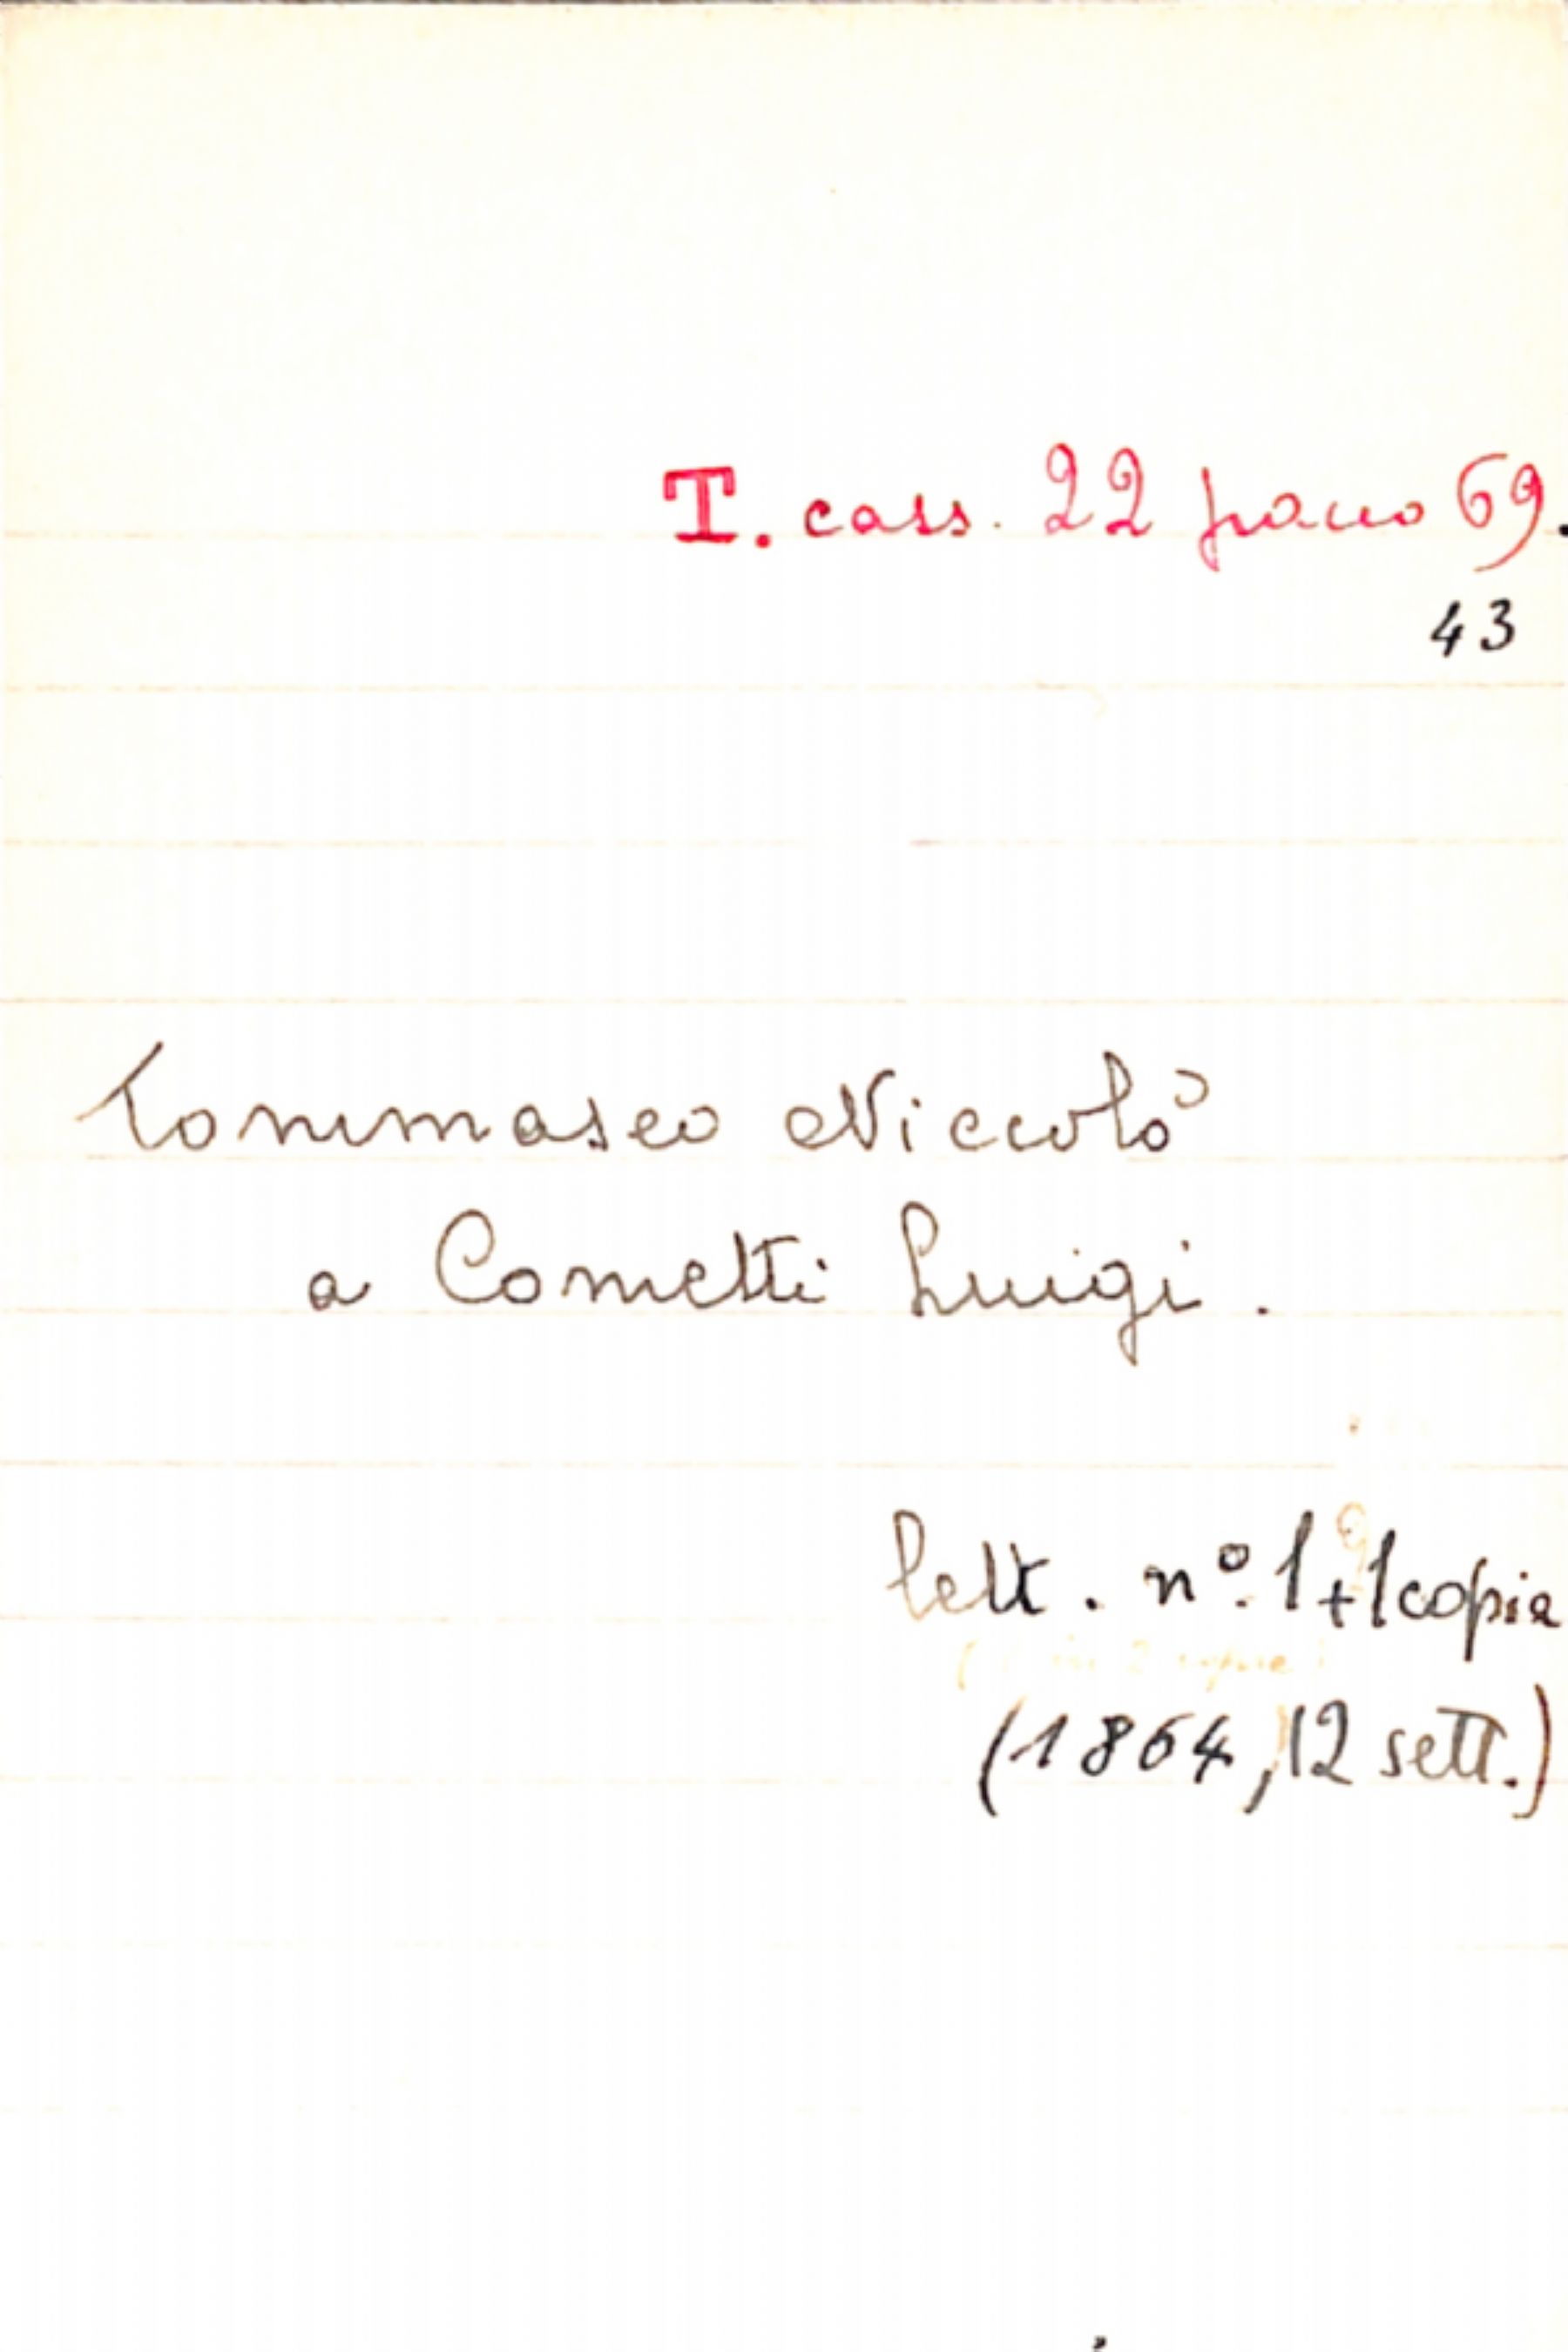 T. cass. 22 panno 69.
43
Tommaseo Niccolò
a Cometti Luigi.
lett. nº. 1+1copia
(1864, 12 sett.)